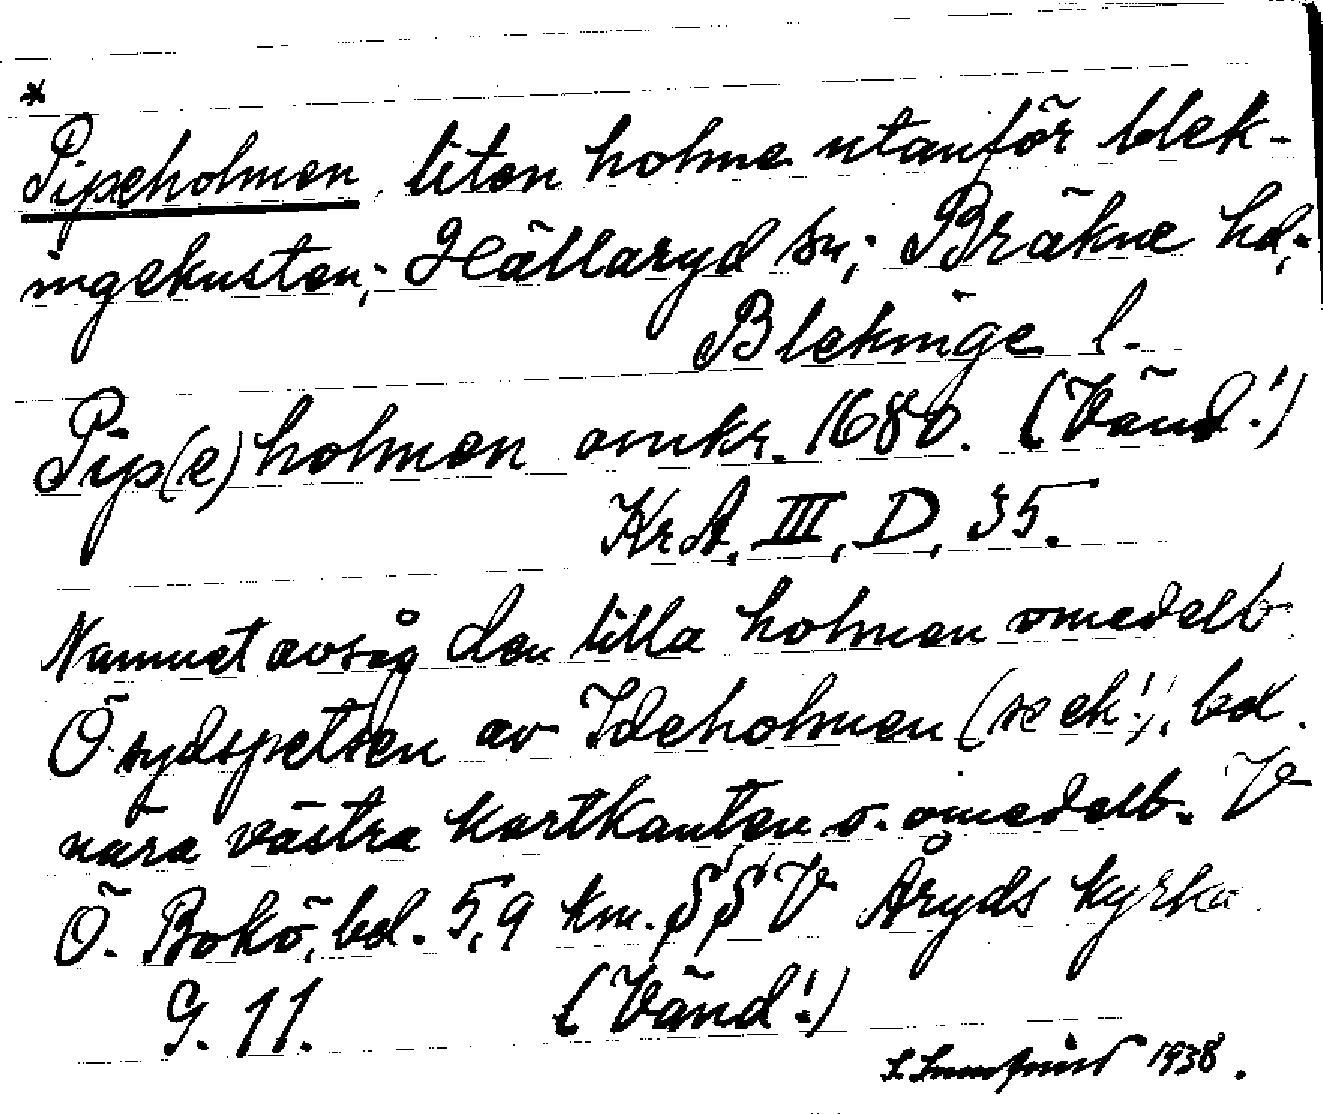 *
Pipeholmen, liten holme utanför blek-
ingekusten; Hällaryd sn; Bräkne hd;
Blekinge l.
Pip(e)holmen omkr. 1680. (Vänd!)
KrA. III, D, 35.
Namnet avsåg den lilla holmen omedelb
Ö sydspetsen av Ideholmen (se ek!), bel.
nära västra kartkanten o. omedelb. V
Ö. Bokö, bel. 5,9 km. SSV Åryds kyrka.
G. 11. (Vänd!)
1938.